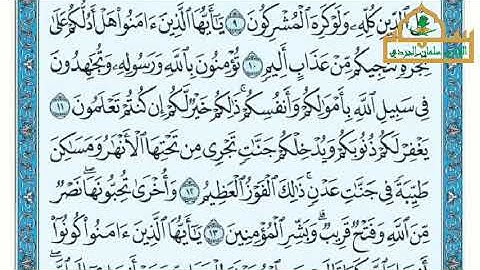 الدِّينِ كُلِّهِۦ وَلَوْ كَرِهَ ٱلْمُشْرِكُونَ ٩ يَٰٓأَيُّهَا ٱلَّذِينَ ءَامَنُوا۟ هَلْ أَدُلُّكُمْ عَلَىٰ
تِجَٰرَةٍ تُنجِيكُم مِّنْ عَذَابٍ أَلِيمٍ ١٠ تُؤْمِنُونَ بِٱللَّهِ وَرَسُولِهِۦ وَتُجَٰهِدُونَ
فِى سَبِيلِ ٱللَّهِ بِأَمْوَٰلِكُمْ وَأَنفُسِكُمْ ۚ ذَٰلِكُمْ خَيْرٌ لَّكُمْ إِن كُنتُمْ تَعْلَمُونَ ١١
يَغْفِرْ لَكُمْ ذُنُوبَكُمْ وَيُدْخِلْكُمْ جَنَّٰتٍ تَجْرِى مِن تَحْتِهَا ٱلْأَنْهَٰرُ وَمَسَٰكِنَ
طَيِّبَةً فِى جَنَّٰتِ عَدْنٍ ۚ ذَٰلِكَ ٱلْفَوْزُ ٱلْعَظِيمُ ١٢ وَأُخْرَىٰ تُحِبُّونَهَا ۖ نَصْرٌ
مِّنَ ٱللَّهِ وَفَتْحٌ قَرِيبٌ ۗ وَبَشِّرِ ٱلْمُؤْمِنِينَ ١٣ يَٰٓأَيُّهَا ٱلَّذِينَ ءَامَنُوا۟ كُونُوٓا۟